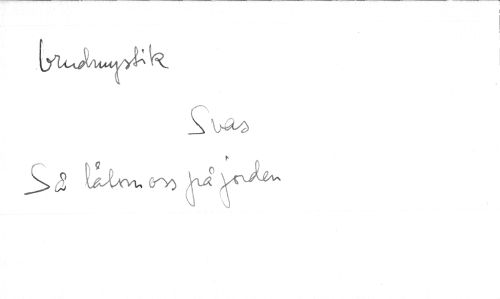 brudmystik
Svas
Så låtom oss på jorden